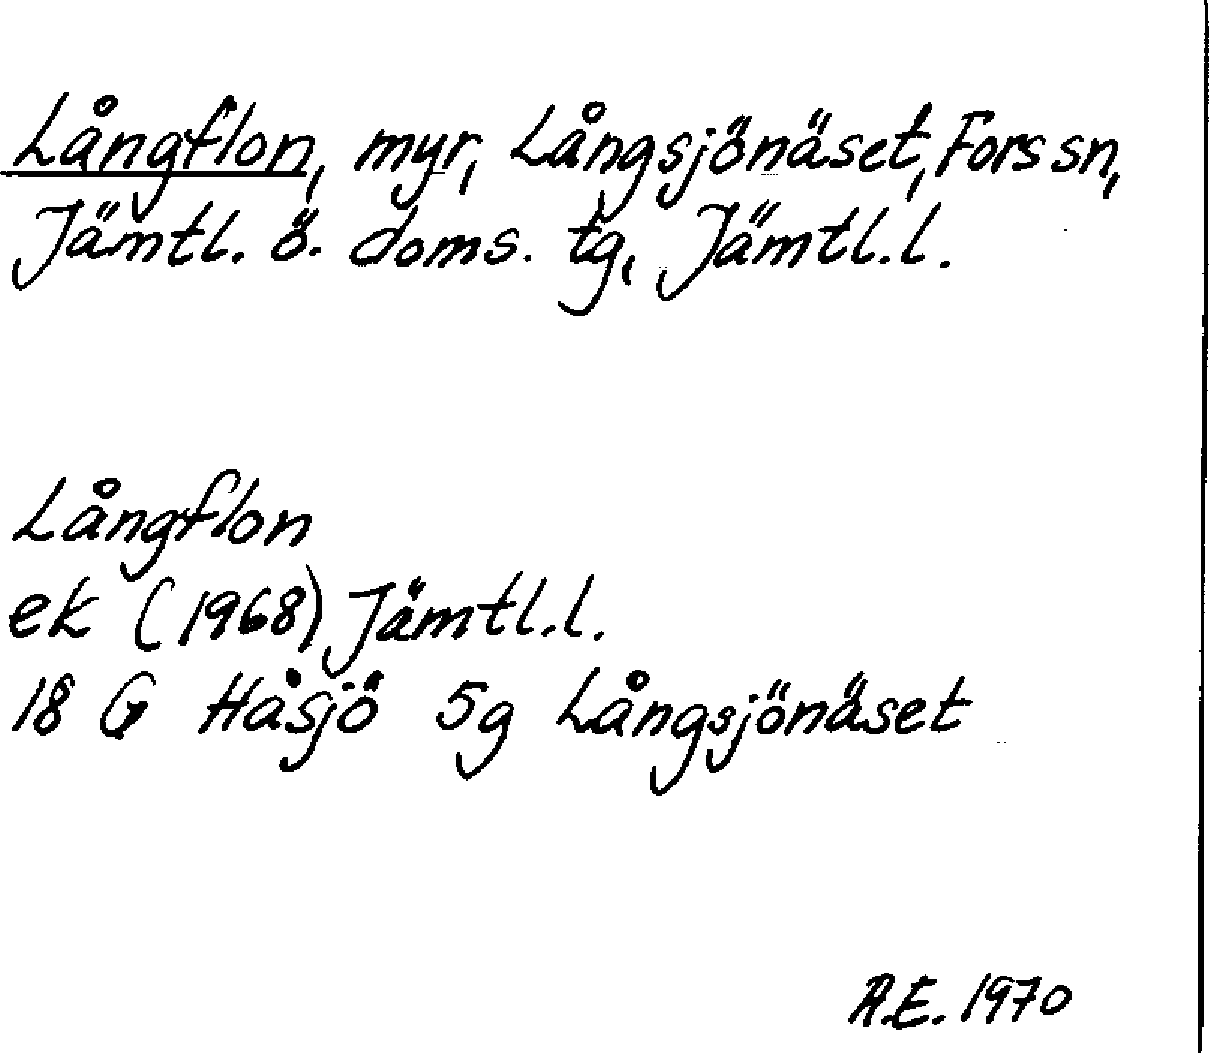 Långflon, myr, Långsjönäset, Fors sn,
Jämtl. ö. doms. tg, Jämtl.l.
Långflon
ek (1968) Jämtl.l.
18 G Håsjö 5g Långsjönäset
A.E. 1970